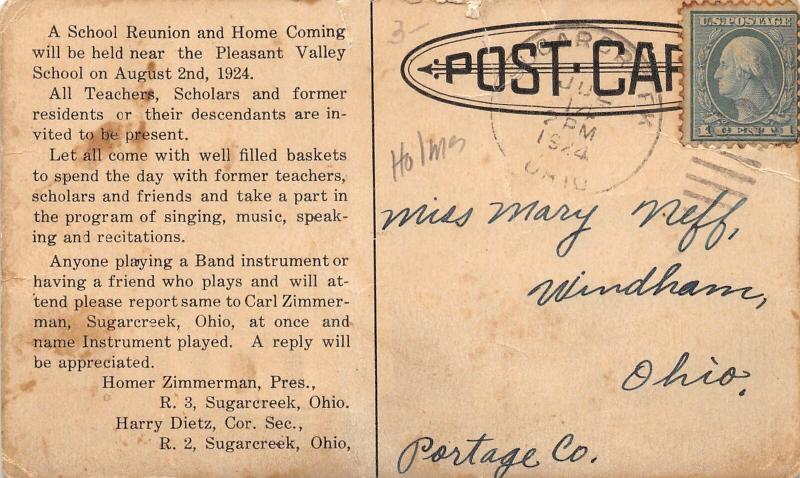 A School Reunion and Home Coming
will be held near the Pleasant Valley
School on August 2nd, 1924.
All Teachers, Scholars and former
residents or their descendants are in-
vited to be present.
Let all come with well filled baskets
to spend the day with former teachers,
scholars and friends and take a part in
the program of singing, music, speak-
ing and recitations.
Anyone playing a Band instrument or
having a friend who plays and will at-
tend please report same to Carl Zimmer-
man, Sugarcreek, Ohio, at once and
name Instrument played. A reply will
be appreciated.
Homer Zimmerman, Pres.,
R. 3, Sugarcreek, Ohio.
Harry Dietz, Cor. Sec.,
R. 2, Sugarcreek, Ohio,
3-
POST CAR
U.S. POSTAGE
1 CENT 1
SUGARCREEK
JUL
14
2 PM
1924
OHIO
Holmes
Miss Mary Neff,
Windham,
Ohio.
Portage Co.